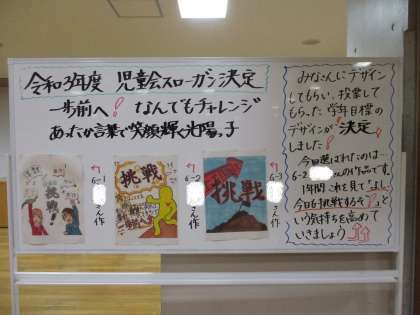 令和3年度 児童会スローガン決定
一歩前へ! なんでもチャレンジ
あったか言葉で笑顔輝く光陽っ子
挑戦
6-1
さん作
挑戦
6-2
さん作
挑戦
6-3
さん作
みなさんにデザイン
してもらい、投票して
もらった学年目標の
デザインが"決定"
しました!
今回選ばれたのは…
6-2 さんの作品です。
1年間これを見て「よし、
今日も挑戦するぞ!」と
いう気持ちを高めて
いきましょう